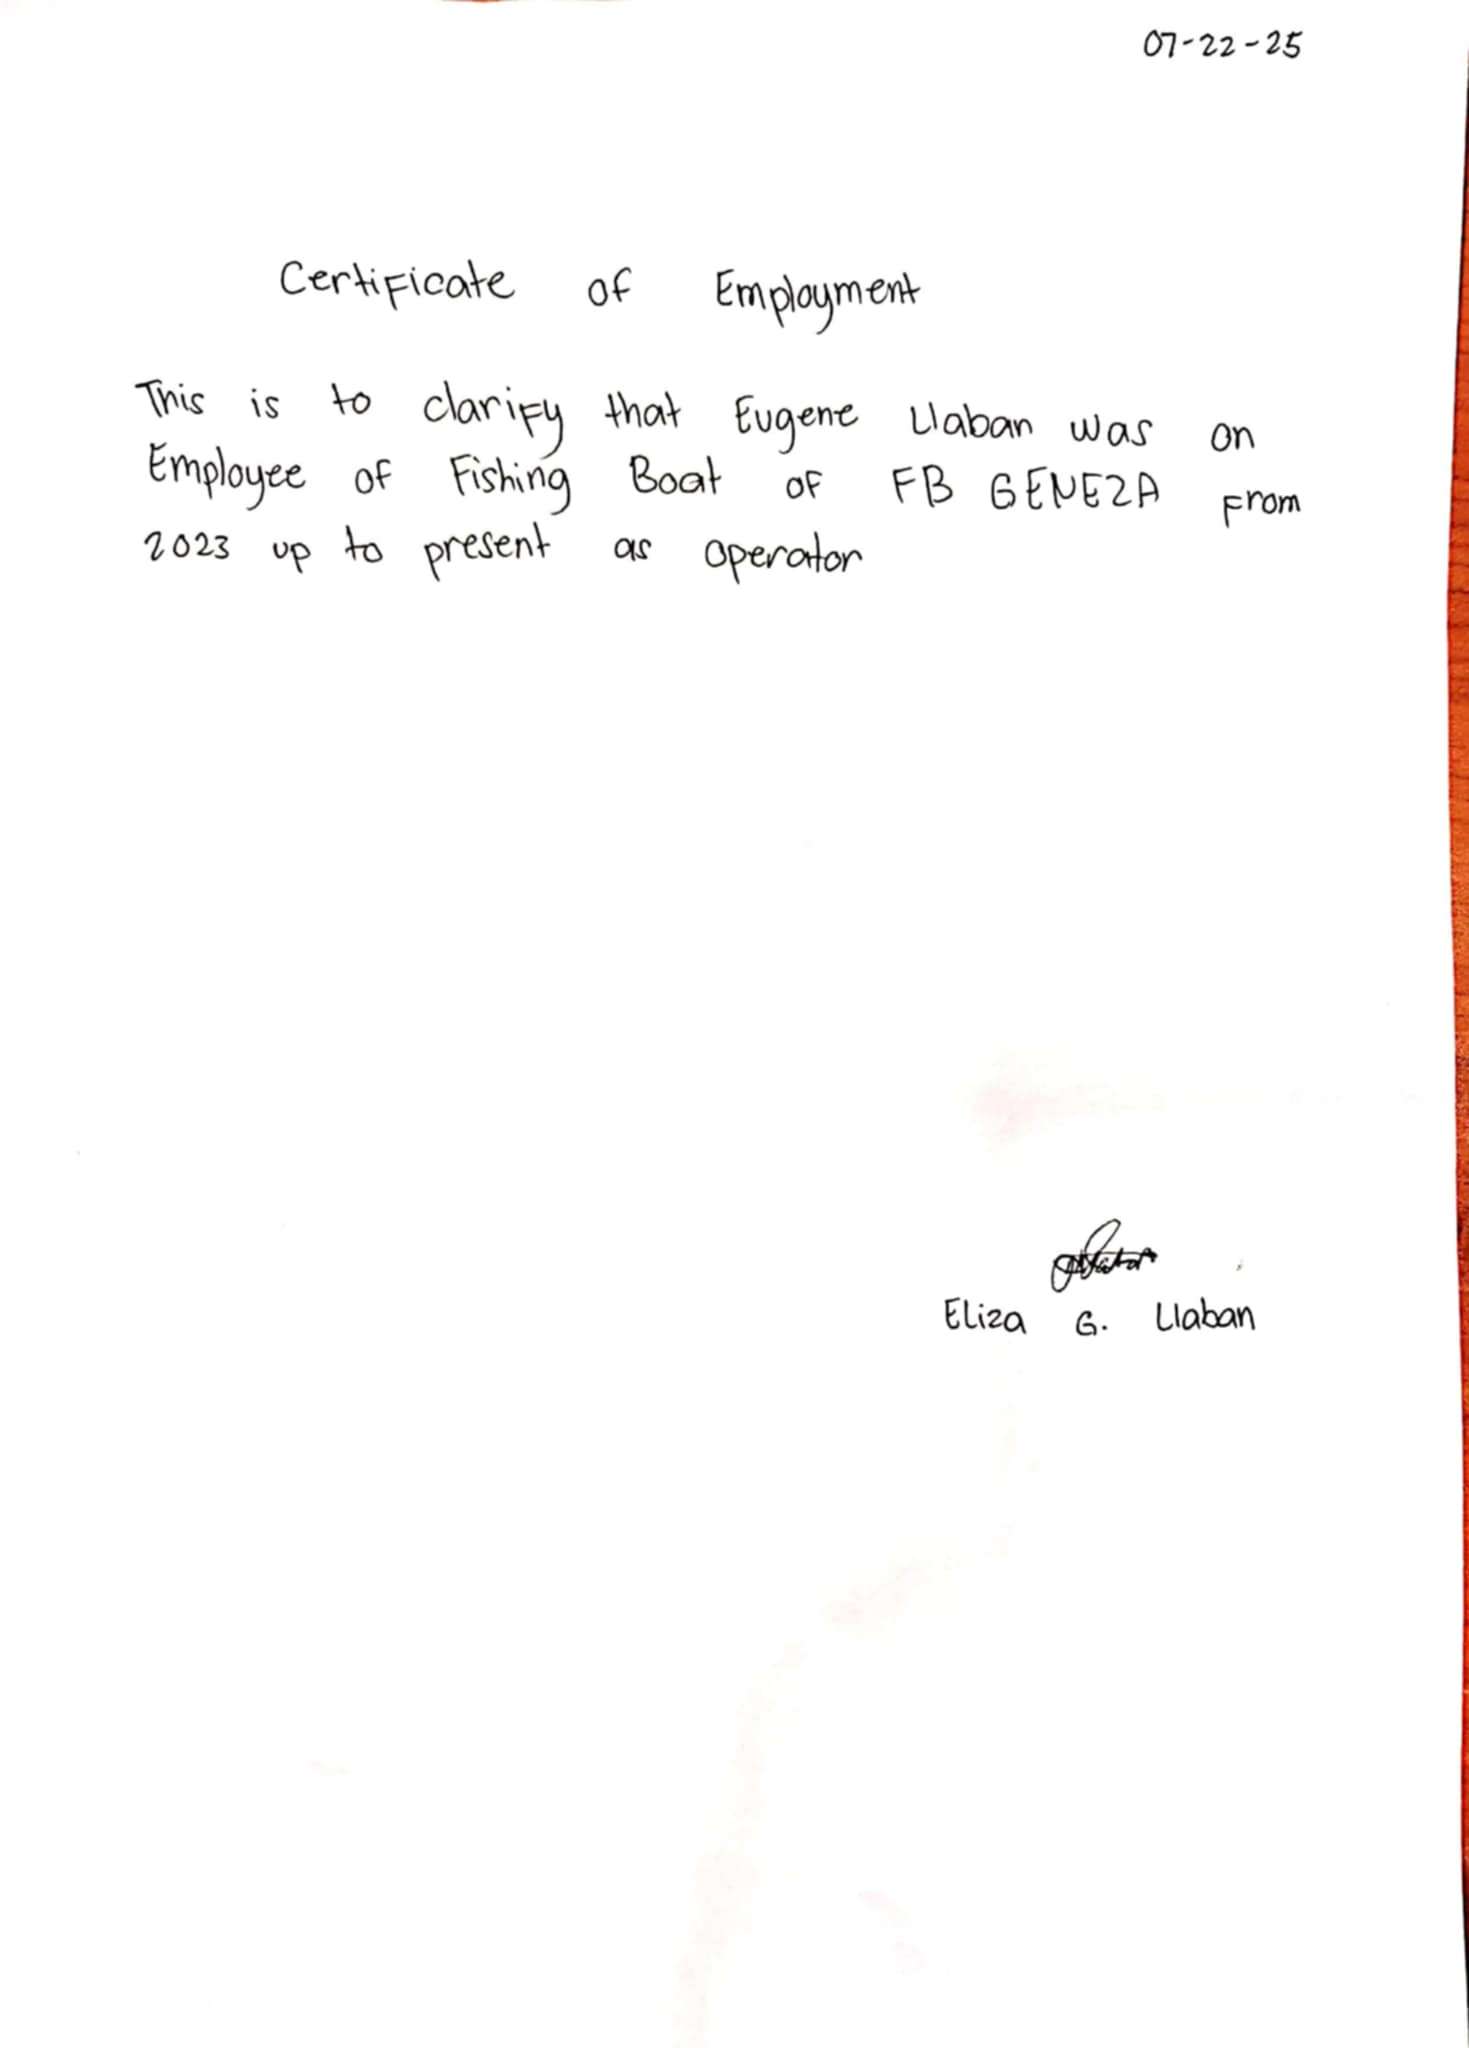 07-22-25
Certificate of Employment
This is to clarify that Eugene Llaban was on
Employee of Fishing Boat of FB GENEZA from
2023 up to present as operator
Eliza G. Llaban